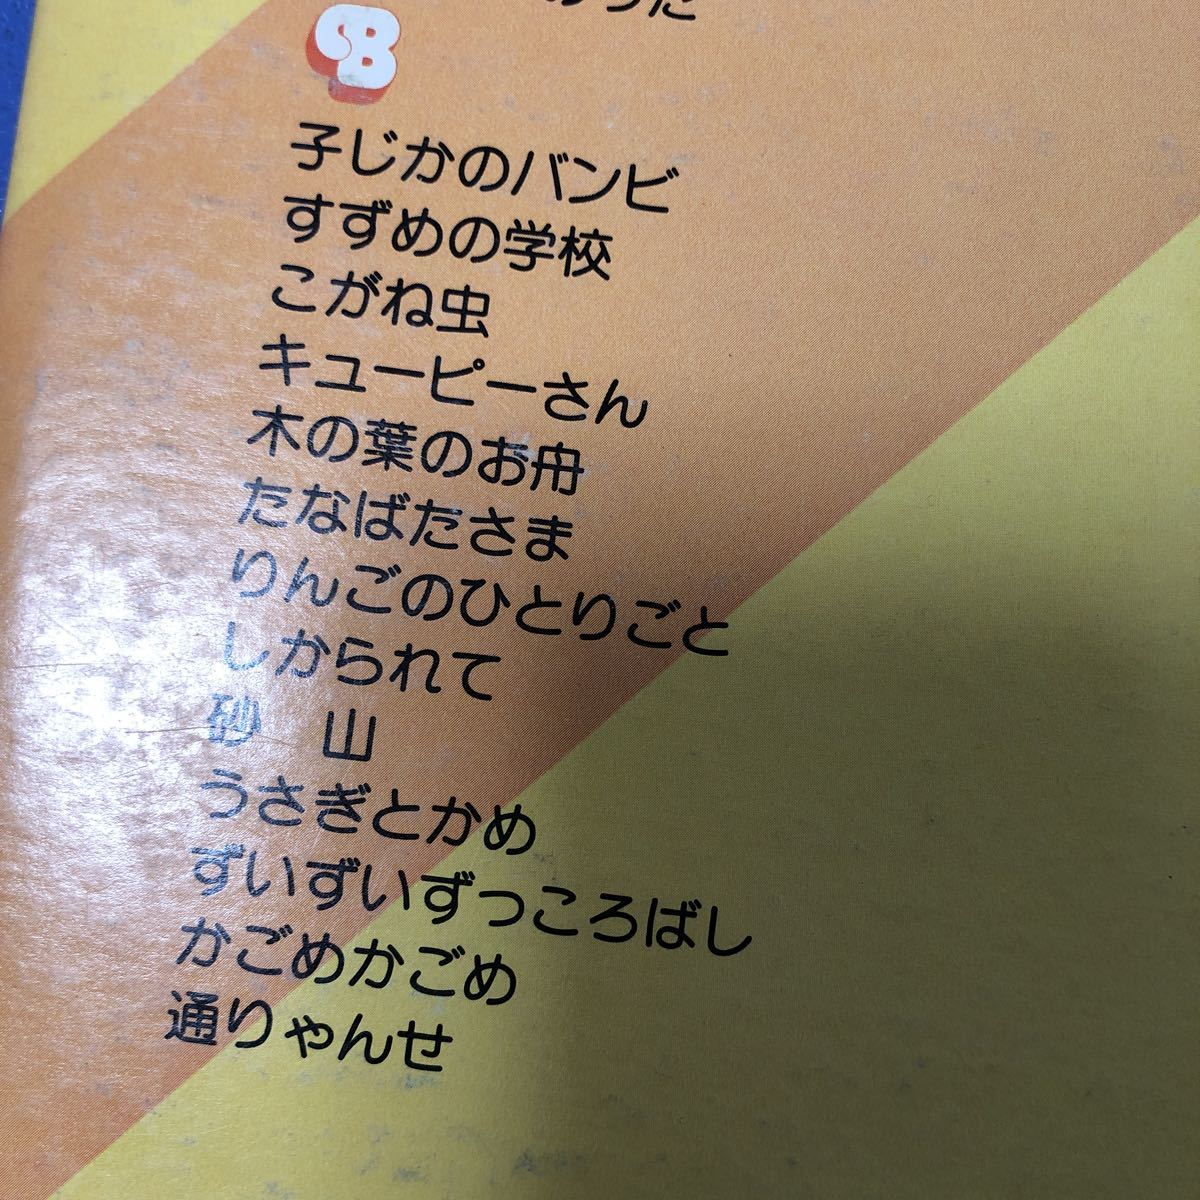 SB
子じかのバンビ
すずめの学校
こがね虫
キューピーさん
木の葉のお舟
たなばたさま
りんごのひとりごと
しかられて
砂　山
うさぎとかめ
ずいずいずっころばし
かごめかごめ
通りゃんせ